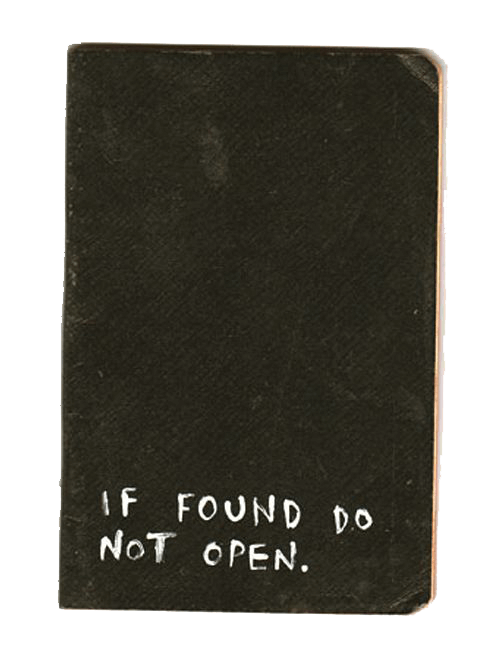 IF FOUND DO
NOT OPEN.